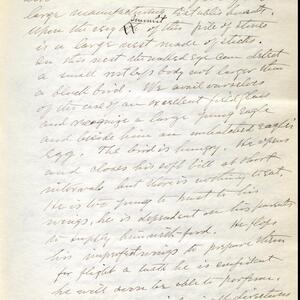 large manufacturing establishments.
Upon the very summit of this pile of sticks
is a large nest made of sticks.
In this nest the naked eye can detect
a small restless body not larger than
a black bird. We avail ourselves
of the use of an excellent field glass
and recognize a large young eagle
and beside him an unhatched eagle's
egg. The bird is hungry. He opens
and closes his soft bill at short
intervals but there is nothing to eat.
He is too young to trust to his
wings, he is dependent on his parents
to supply him with food. He flops
his wings to prepare them
for flight a he is confident
he will soon be able to perform.